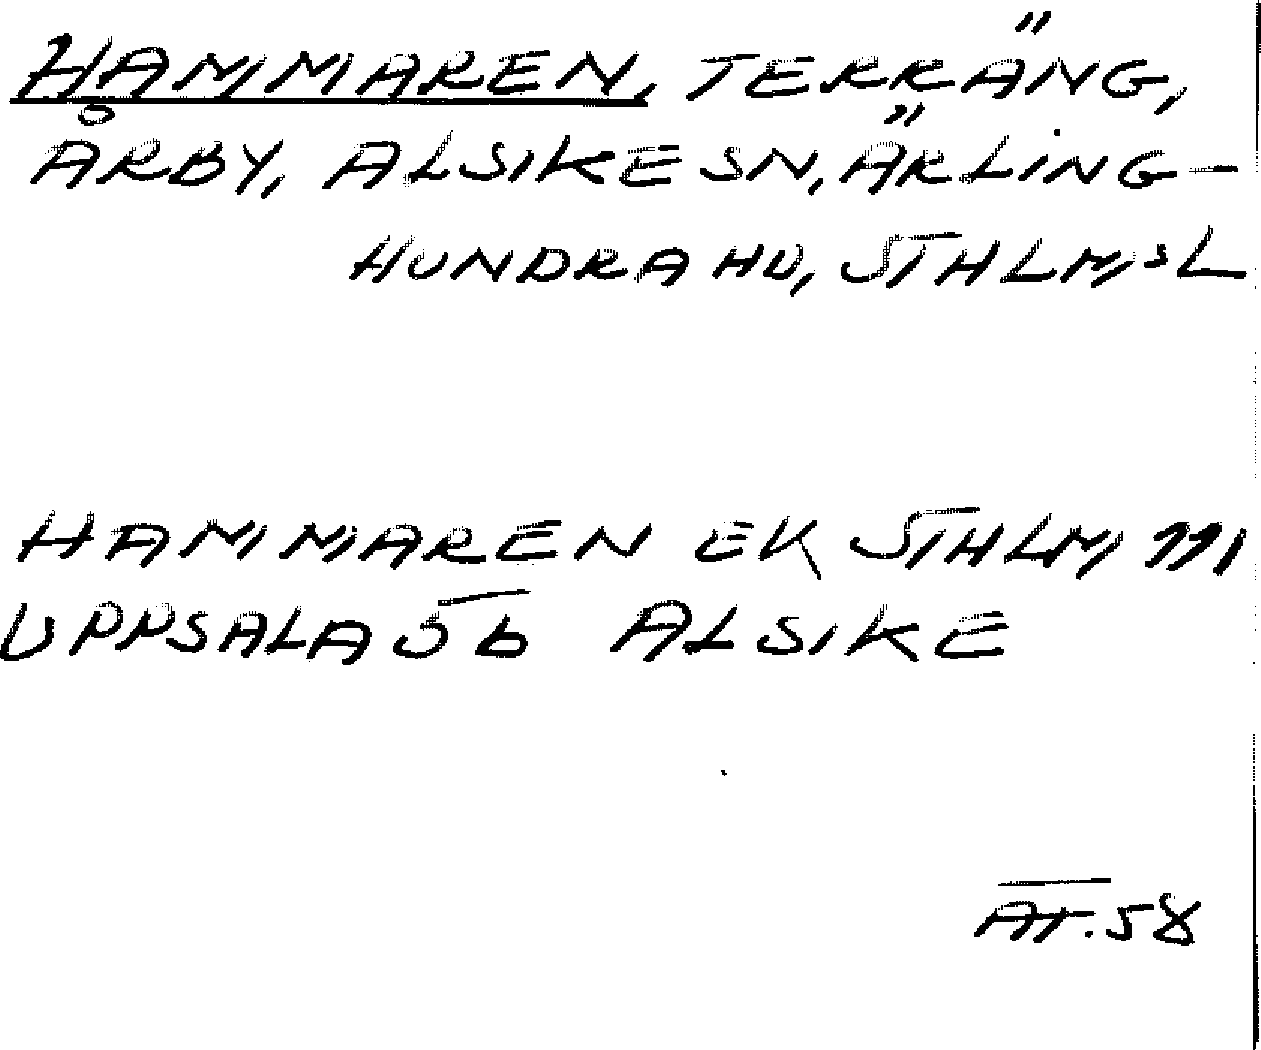 HAMMAREN, TERRÄNG,
ÅRBY, ALSIKE SN, ÄRLING-
HUNDRA HD, STHLMSL
HAMMAREN EK STHLM 111
UPPSALA 5b ALSIKE
AT.58